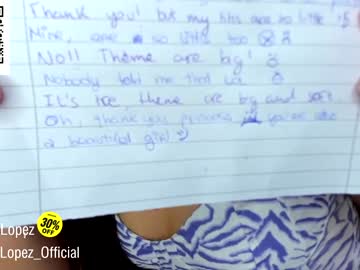 Thank you! but my tits are to little :'(
Mine, are so little too
No!! Theme are big!
Nobody tell me that
It's true, theme are big and soft
Oh, thank you you are
a beautiful girl
Lopez
30% OFF
Lopez_Official